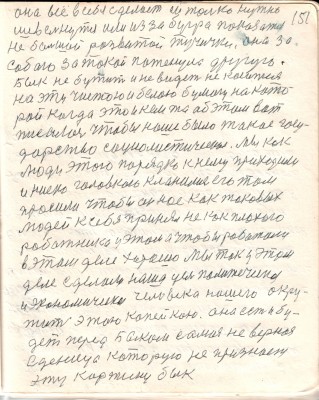 она все всея сделает ей только нужно
шевелнутся или из за бугра показать
не большой розвитой тучичку, она за
собою затокой потянула другого. 151
Бык не бутит и не видет не кается
на эту чистою и белою бумагу на кото
рой когда это и кем то об этом вот
писался, чтобы наше было такое госу
дарство социолистическое. Мы как
люди этого порядко к нему приходили
и низко головою кланимся его том
просили чтобы нас как таковых
людей к себя принял не как плохого
работника и этом а чтобы работали
в этом деле хорошо Мы так и этом
деле сделали наша цель политическа
и экономически человека нашего окру
жит этою копейкою. она есть и бу
дет перед Быком самая не верная
сденица которую не признает
эту картину бык